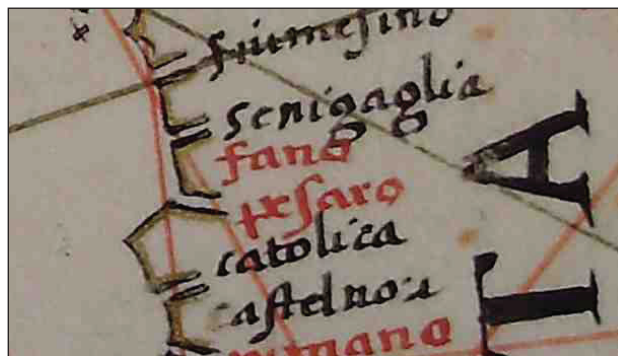 fiumesino
senigaglia
fano
pesaro
catolica
castelno:a
rimano
TA